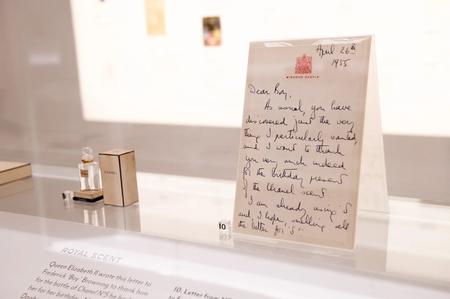 April 26th
1955
WINDSOR CASTLE
Dear Boy,
As usual, you have
discovered just the very
thing I particularly wanted
and I want to thank
you very much indeed
for the birthday present
of the Chanel scent
I am already using '5'
and I hope, smelling all
the better for '5'
CHANEL
10
ROYAL SCENT
Queen Elizabeth II wrote this letter to
Frederick 'Boy' Browning to thank him
for the bottle of Chanel N°5 he
her for her birthday.
10. Letter from